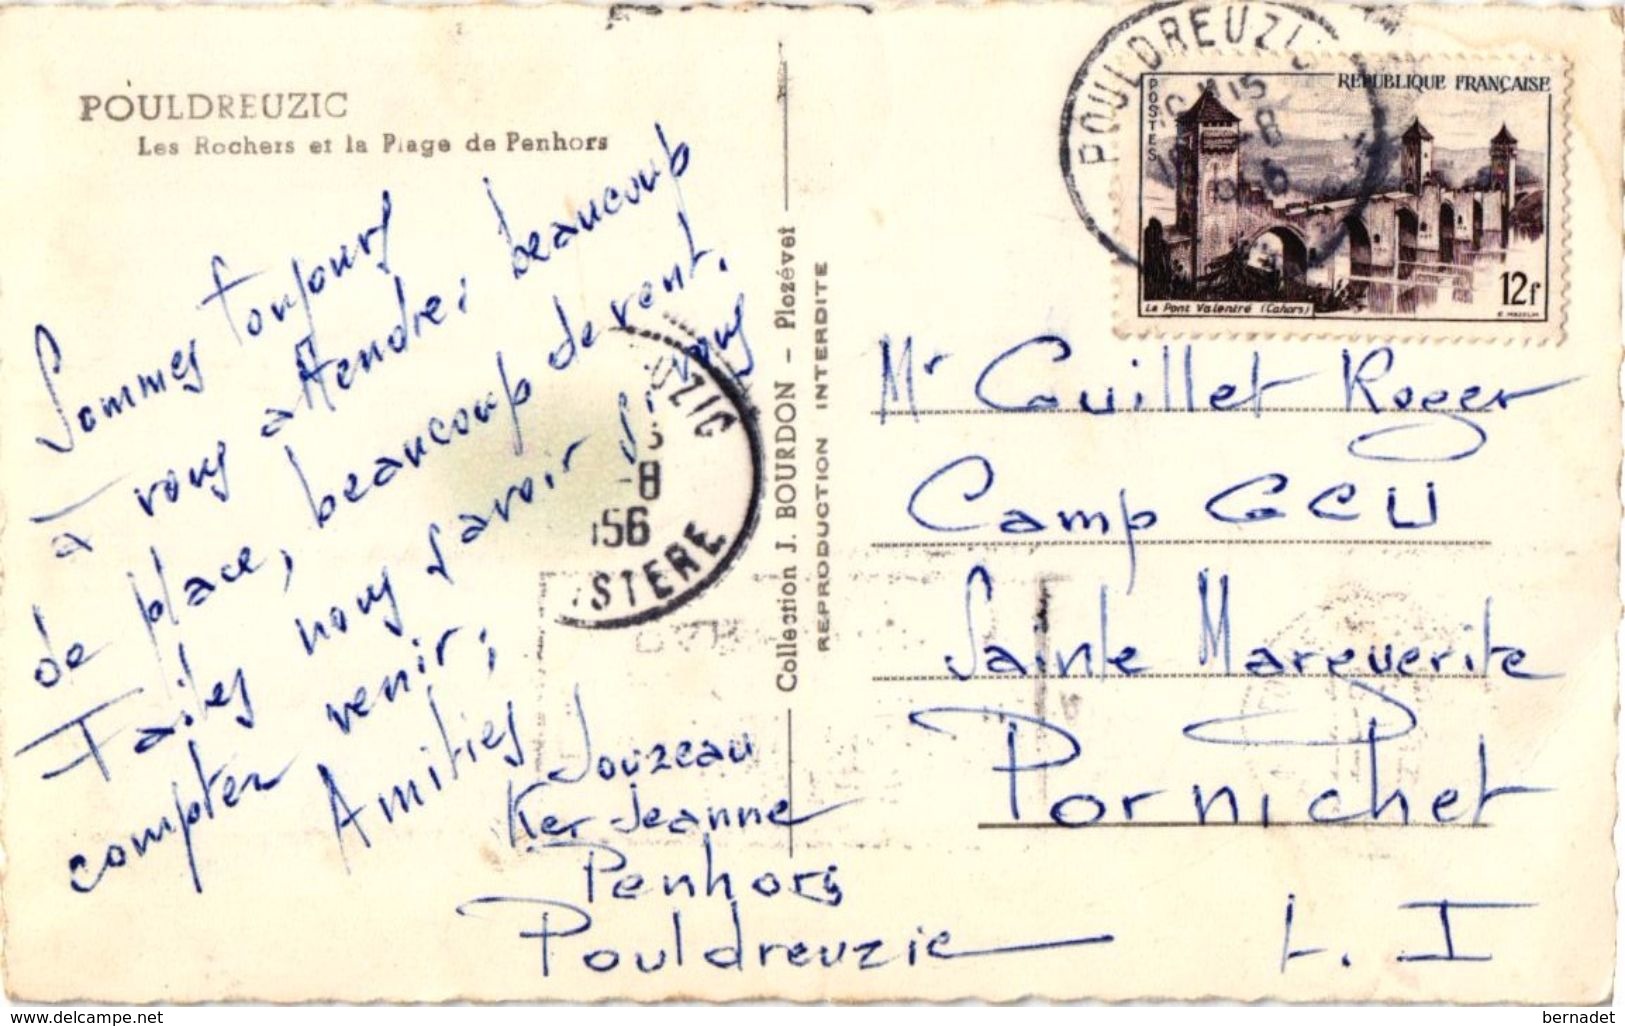 POULDREUZIC
Les Rochers et la Plage de Penhors
Sommes toujours
à vous attendre, beaucoup
de place, beaucoup de vent.
Faites nous savoir si vous
compter venir;
Amitiés
Jouzeau
Ker-Jeanne
Penhors
Pouldreuzic
UZIC
-8
156
ISTERE
Collection J. BOURDON - Plozévet
REPRODUCTION INTERDITE
POULDREUZIC
REPUBLIQUE FRANÇAISE
POSTES
Le Pont Valentré (Cahors)
12f
Mr Guillet Roger
Camp GCU
Sainte Marguerite
Pornichet
L. I
www.delcampe.net
bernadet